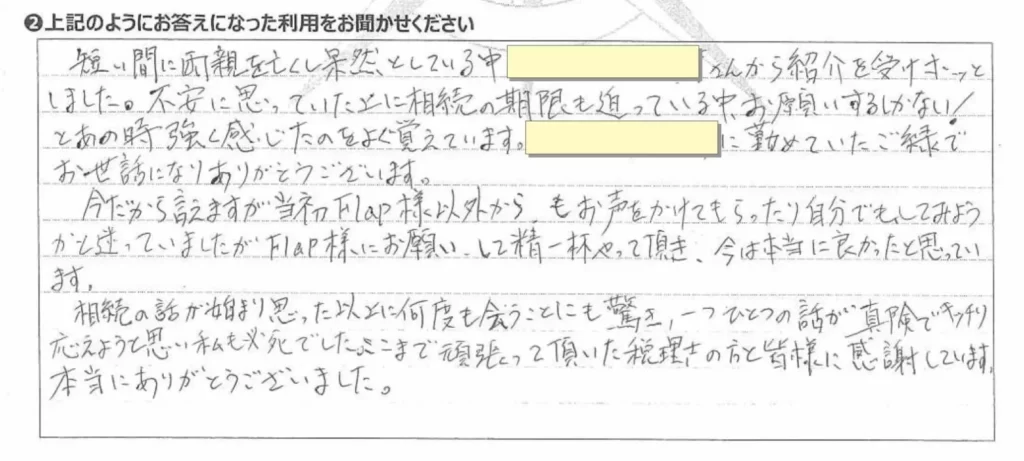 ❷上記のようにお答えになった利用をお聞かせください
短い間に両親を亡くし呆然としている中 さんから紹介を受けホッと
しました。不安に思っていた上に相続の期限も迫っている中、お願いするしかない!
とあの時強く感じたのをよく覚えています。 に勤めていたご縁で
お世話になりありがとうございます。
今だから言えますが当初Flap様以外から、もお声をかけてもらったり自分でもしてみよう
かと迷っていましたがFlap様にお願いして精一杯やって頂き、今は本当に良かったと思ってい
ます。
相続の話が始まり思った以上に何度も会うことにも驚き、一つひとつの話が真険でキッチリ
応えようと思い私も必死でした。ここまで頑張って頂いた税理士の方と皆様に感謝しています。
本当にありがとうございました。